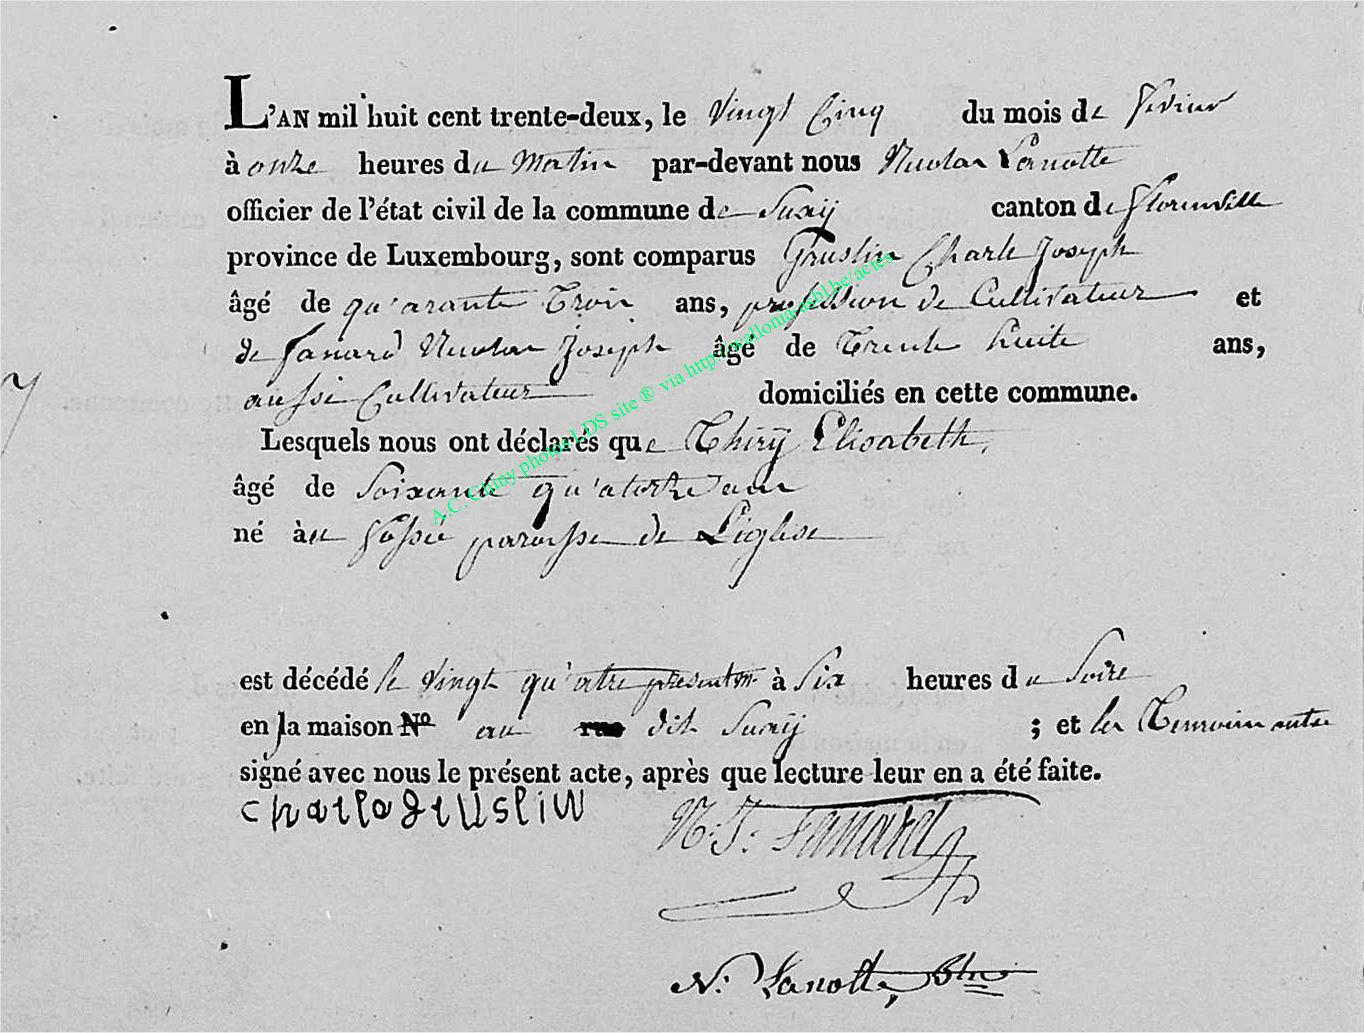 L'AN mil huit cent trente-deux, le Vingt Cinq du mois de fevrier
à onze heures du Matin par-devant nous Nicolas Lanotte
officier de l'état civil de la commune de Suxÿ canton de florenville
province de Luxembourg, sont comparus Gruslin Charle Joseph
âgé de qu'arante Trois ans, profession de Cultivateur et
de fanard Nicolas Joseph âgé de Trente huite ans,
aussi Cultivateur domiciliés en cette commune.
Lesquels nous ont déclarés que Thirÿ Elisabeth,
âgé de Soixante qu'atorze ans
né à au fossé paroisse de L'eglise
est décédé le Vingt qu'atre present m. à Six heures du Soire
en la maison No au rue dit Suxÿ ; et les Temoins
signé avec nous le présent acte, après que lecture leur en a été faite.
charlagruslin
N. J. Fanard
N. Lanotte, Btre
A.C. Chiny photos LDS site ® via http://wallonia-asbl.be/actes